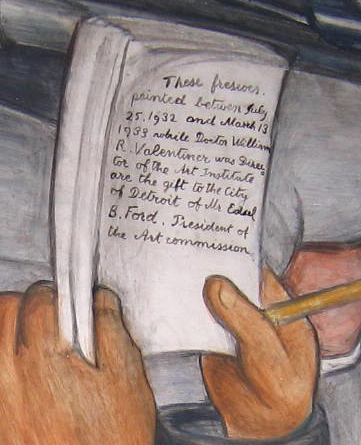 These frescoes.
painted between July
25, 1932 and March 13
1933 while Doctor William
R. Valentiner was Direc
tor of the Art Institute
are the gift to the City
of Detroit of Mr Edsel
B. Ford. President of
the Art commission